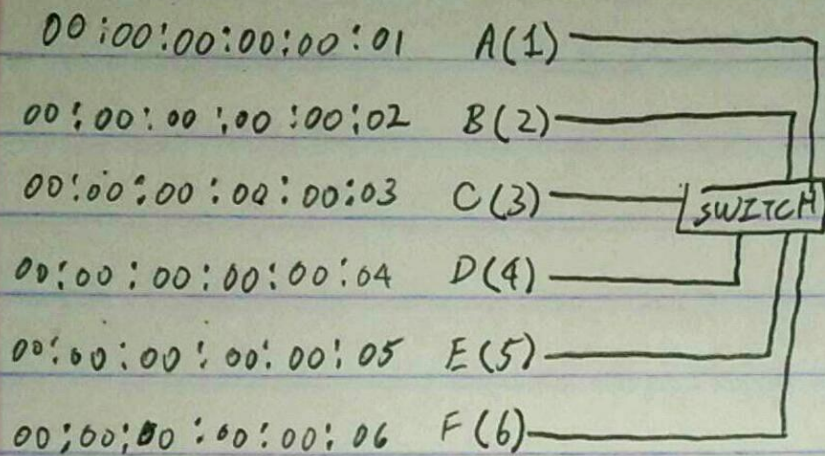 00:00:00:00:00:01 A(1)
00:00:00:00:00:02 B(2)
00:00:00:00:00:03 C(3)
SWITCH
00:00:00:00:00:04 D(4)
00:00:00:00:00:05 E(5)
00:00:00:00:00:06 F(6)